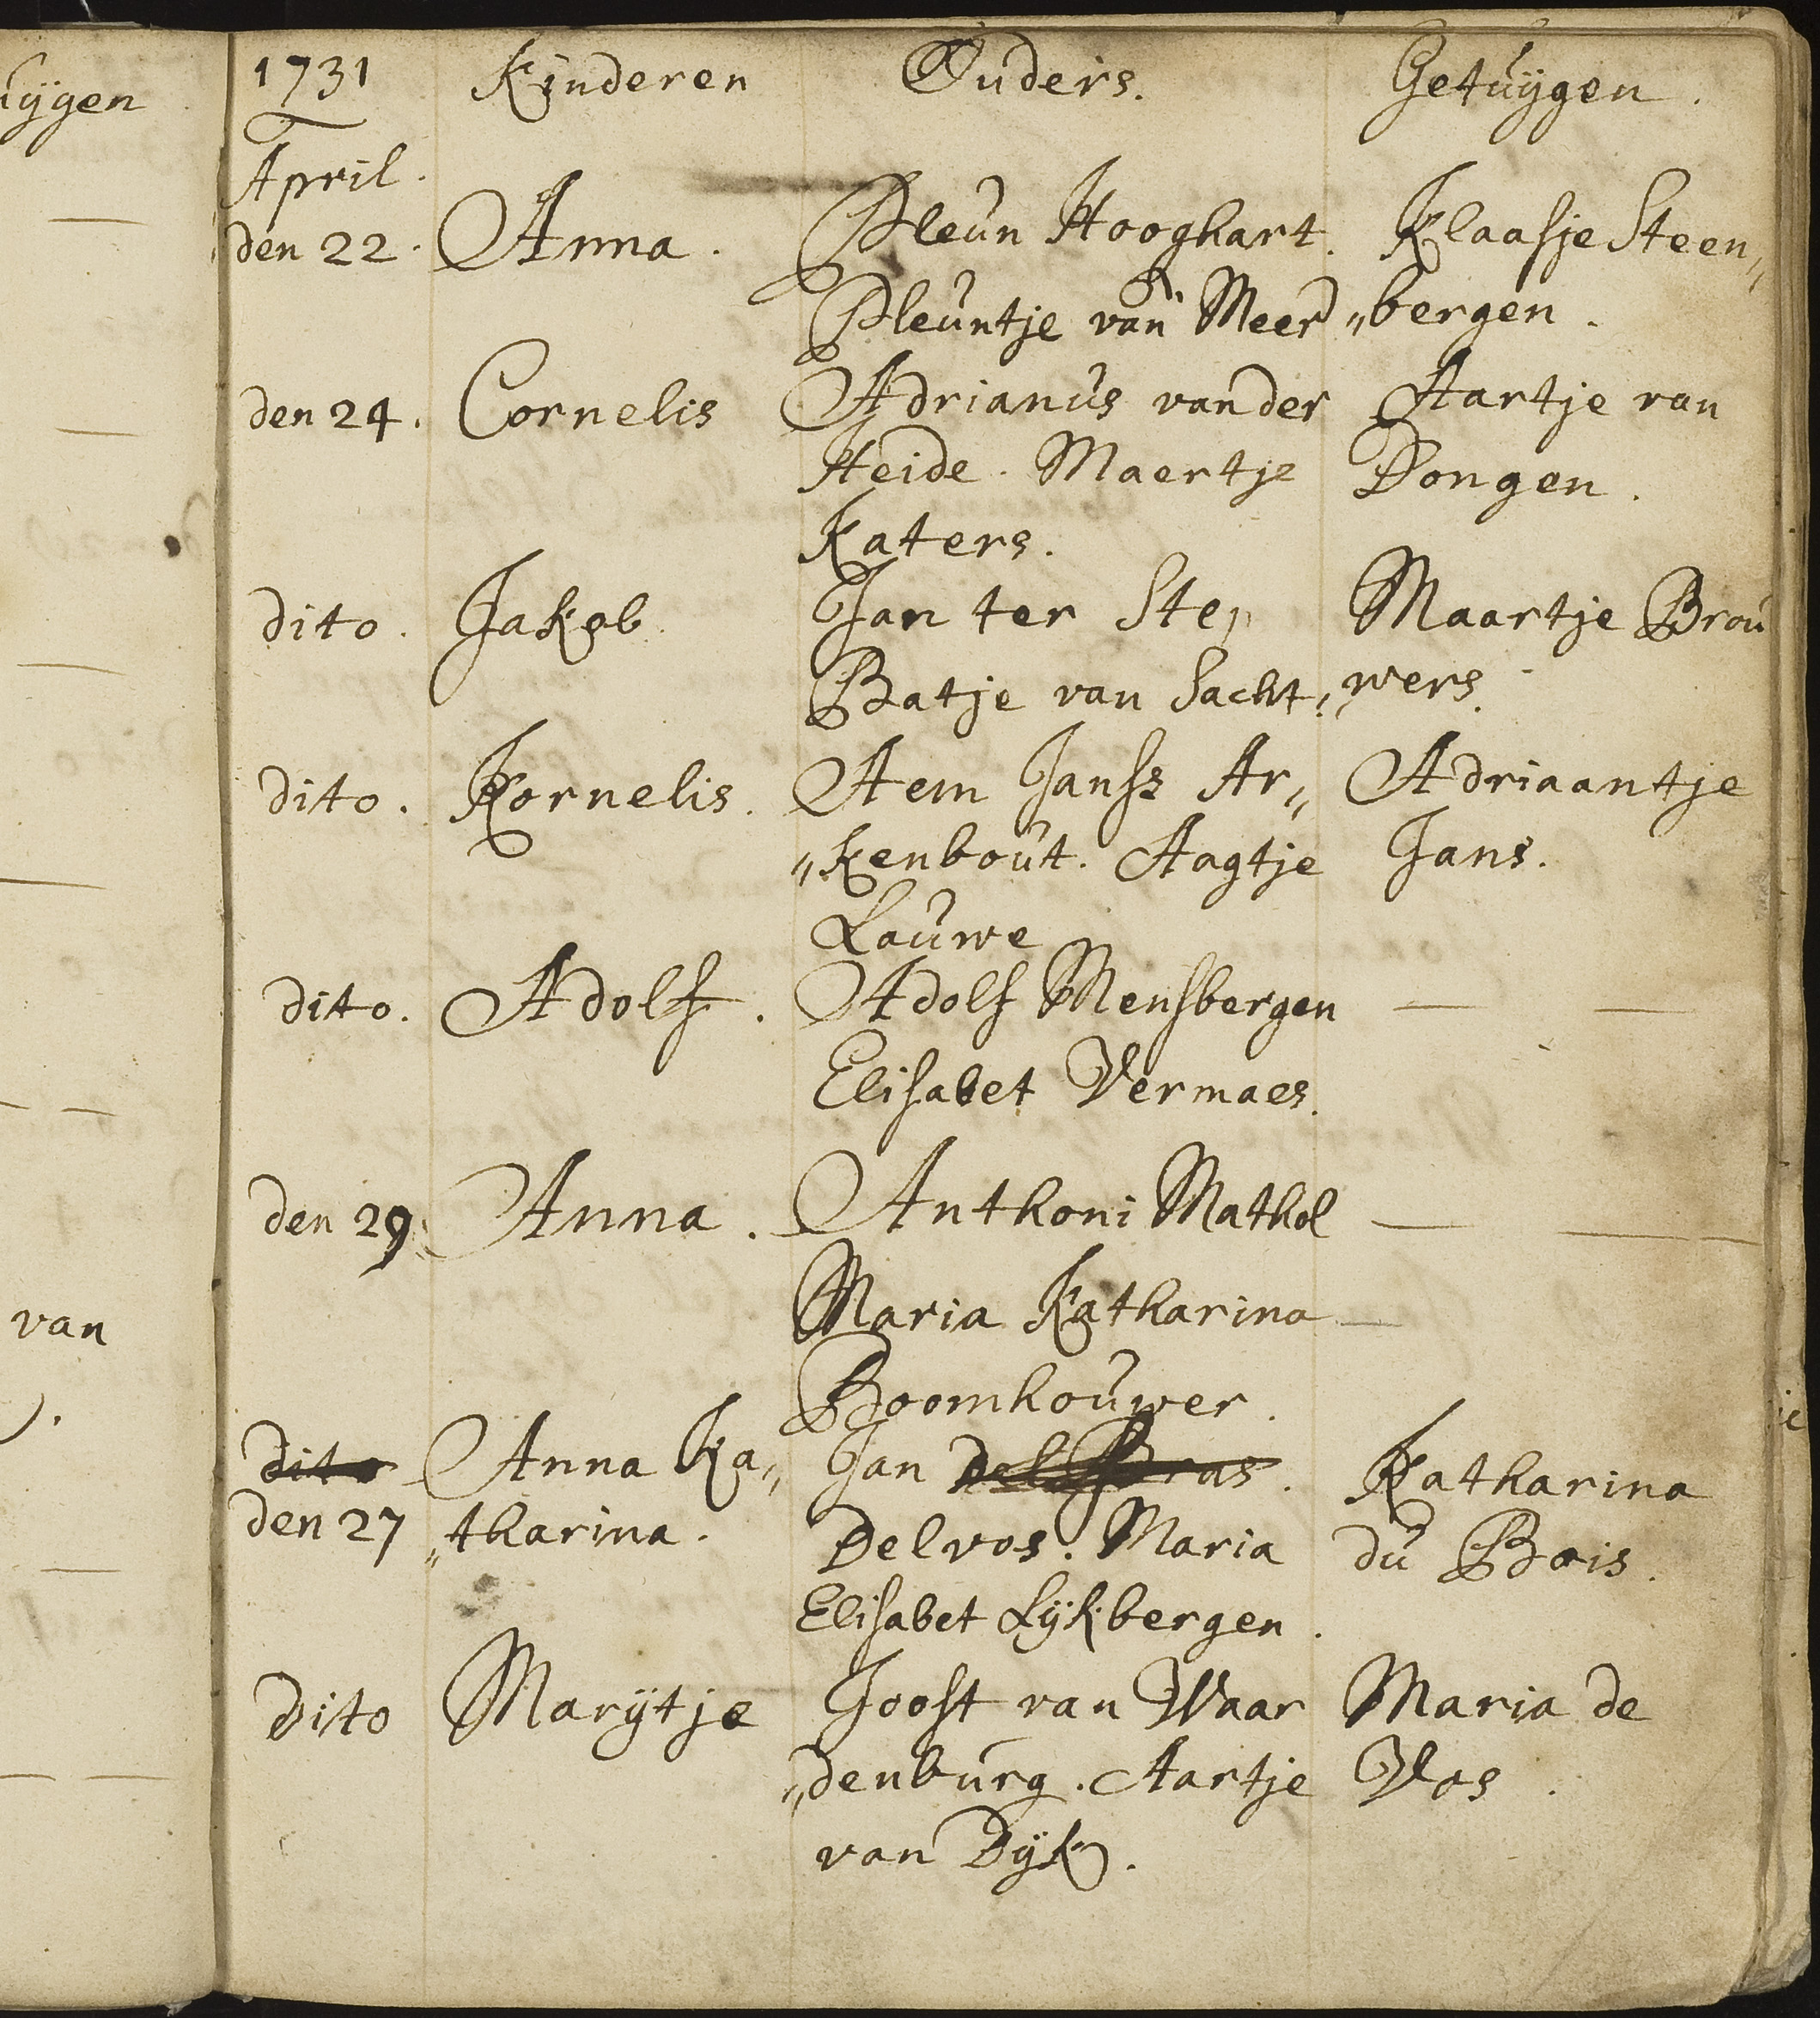 uÿgen
van
1731 Kinderen Ouders. Getuÿgen.
April.
den 22. Anna. Pleun Hooghart. Klaasje Steen„
Pleuntje van Meer „bergen.
den 24. Cornelis Adrianus vander Aartje van
Heide. Maertje Dongen.
Katers.
dito. Jakob Jan ter Step Maartje Brou
Batje van Sacht„ wers.
dito. Kornelis. Aem Janss Ar„ Adriaantje
„kenbout. Aagtje Jans.
Lauwe
dito. Adolf. Adolf Mensbergen — —
Elisabet Vermaes.
den 29. Anna. Anthoni Mathol — —
Maria Katharina —
Boomhouwer.
dito Anna Ka„ Jan . Katharina
den 27 „tharina. Delvos. Maria du Bois.
Elisabet Lÿkbergen.
Dito Marÿtje Joost van Waar Maria de
„denburg. Aartje Vos.
van Dÿk.